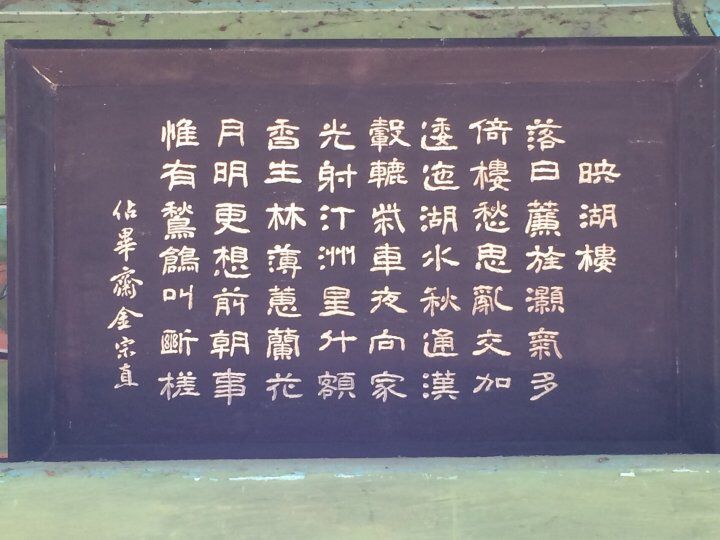 映湖樓
落日薰旌灝氣多
倚樓愁思亂交加
逶迤湖水秋通漢
轂轆柴車夜向家
光射汀洲星什額
香生林薄蕙蘭花
月明更想前朝事
惟有鶖鶬叫斷槎
佔畢齋金宗直